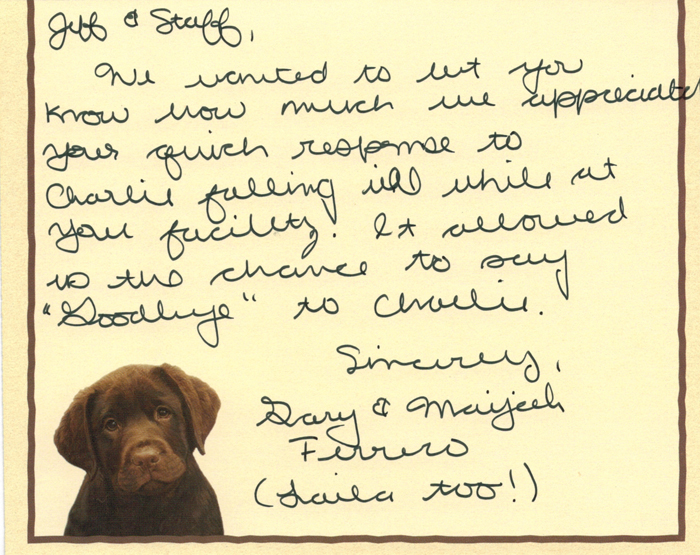 Jeff & Staff,
We wanted to let you
know how much we appreciated
your quick response to
Charlie falling ill while at
your facility. It allowed
us the chance to say
"Goodbye" to Charlie.
Sincerely,
Gary & Maijaeh
Ferrero
(Laila too!)